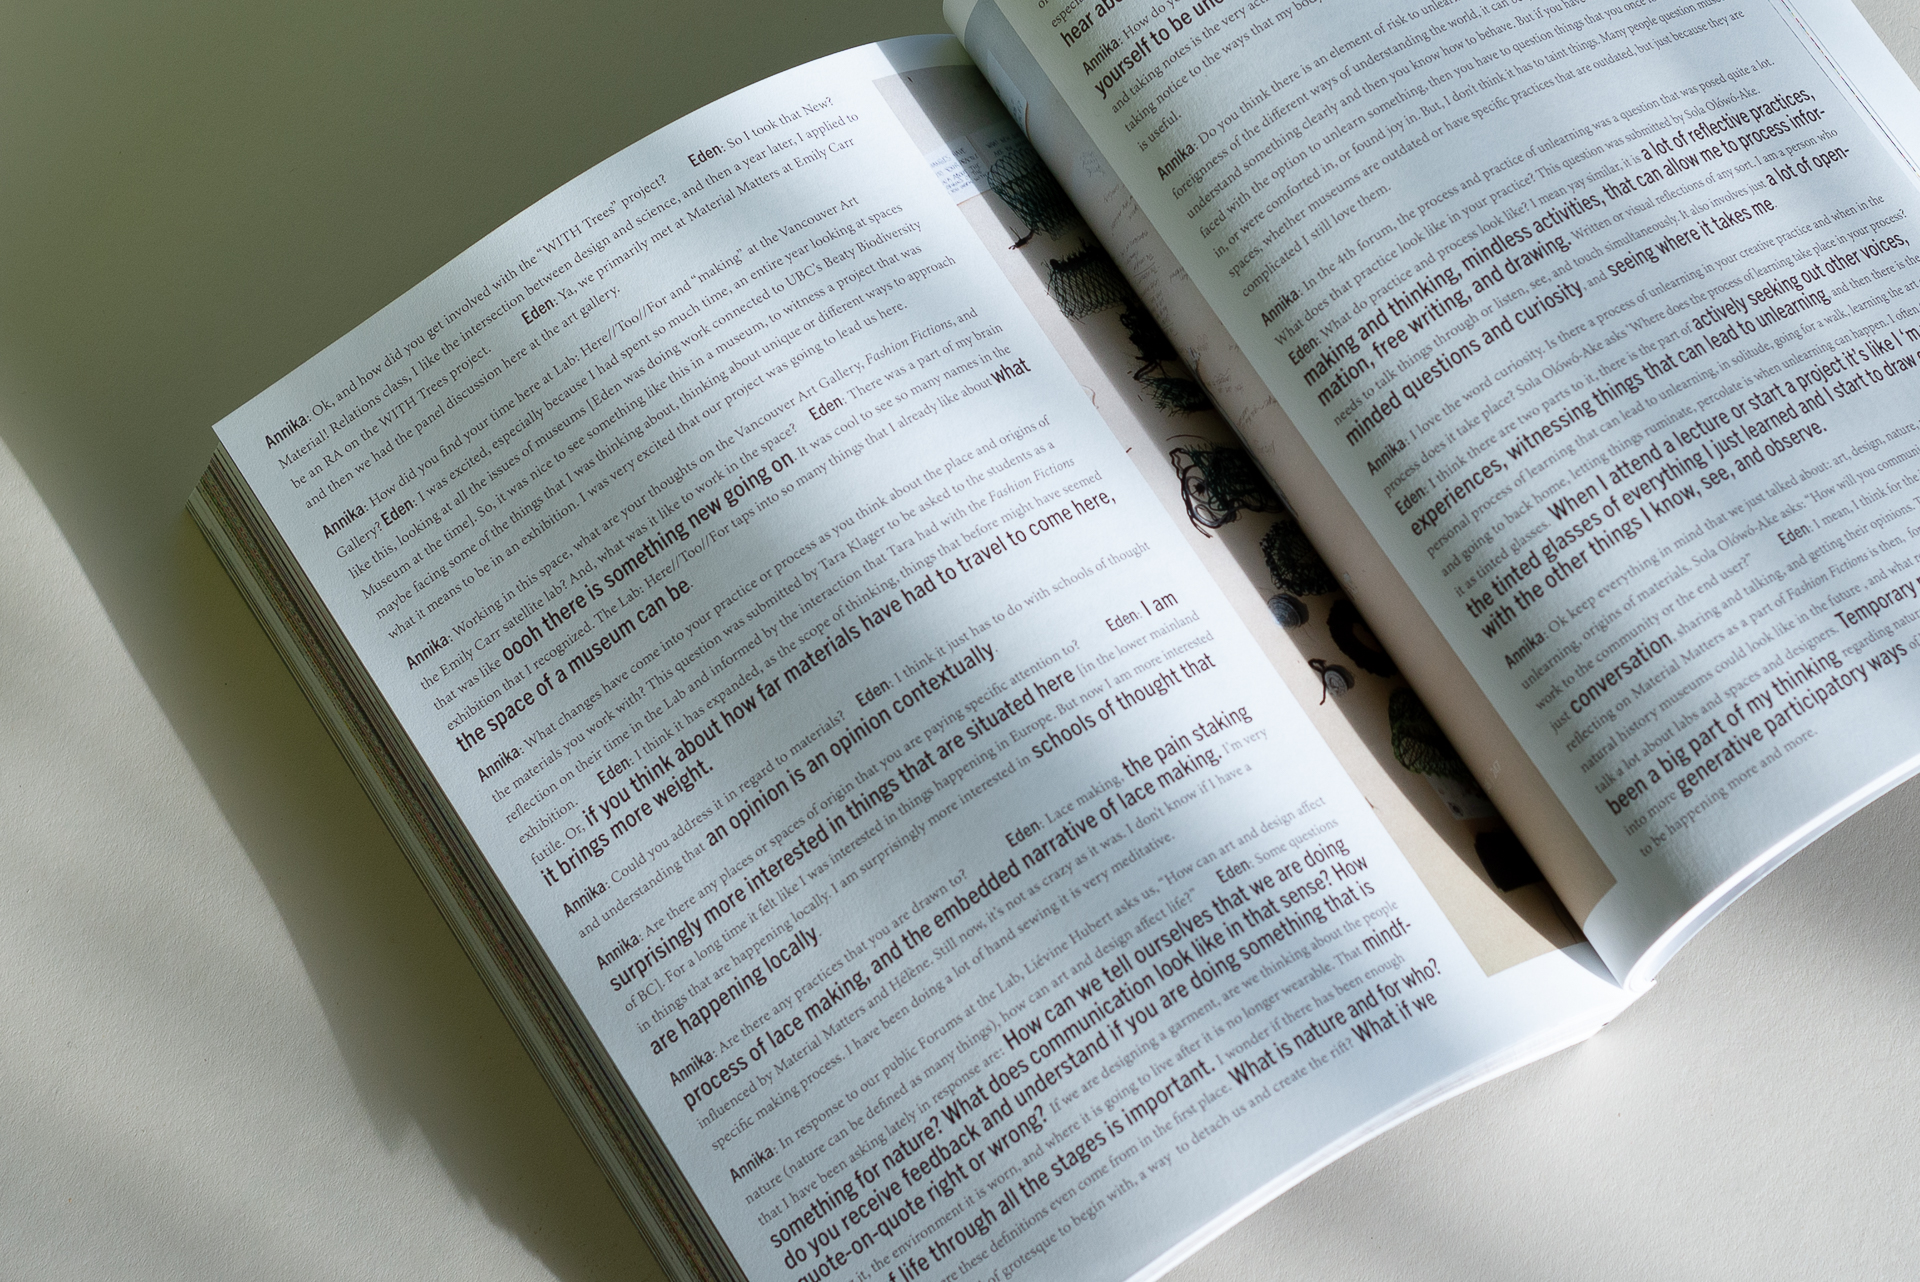 Annika: Ok, and how did you get involved with the “WITH Trees” project? Eden: So I took that New?
Material! Relations class, I like the intersection between design and science, and then a year later, I applied to
be an RA on the WITH Trees project. Eden: Ya, we primarily met at Material Matters at Emily Carr
and then we had the panel discussion here at the art gallery.
Annika: How did you find your time here at Lab: Here//Too//For and “making” at the Vancouver Art
Gallery? Eden: I was excited, especially because I had spent so much time, an entire year looking at spaces
like this, looking at all the issues of museums [Eden was doing work connected to UBC’s Beaty Biodiversity
Museum at the time]. So, it was nice to see something like this in a museum, to witness a project that was
maybe facing some of the things that I was thinking about, thinking about unique or different ways to approach
what it means to be in an exhibition. I was very excited that our project was going to lead us here.
Annika: Working in this space, what are your thoughts on the Vancouver Art Gallery, Fashion Fictions, and
the Emily Carr satellite lab? And, what was it like to work in the space? Eden: There was a part of my brain
that was like oooh there is something new going on. It was cool to see so many names in the
exhibition that I recognized. The Lab: Here//Too//For taps into so many things that I already like about what
the space of a museum can be.
Annika: What changes have come into your practice or process as you think about the place and origins of
the materials you work with? This question was submitted by Tara Klager to be asked to the students as a
reflection on their time in the Lab and informed by the interaction that Tara had with the Fashion Fictions
exhibition. Eden: I think it has expanded, as the scope of thinking, things that before might have seemed
futile. Or, if you think about how far materials have had to travel to come here,
it brings more weight.
Annika: Could you address it in regard to materials? Eden: I think it just has to do with schools of thought
and understanding that an opinion is an opinion contextually.
Annika: Are there any places or spaces of origin that you are paying specific attention to? Eden: I am
surprisingly more interested in things that are situated here [in the lower mainland
of BC]. For a long time it felt like I was interested in things happening in Europe. But now I am more interested
in things that are happening locally. I am surprisingly more interested in schools of thought that
are happening locally.
Annika: Are there any practices that you are drawn to? Eden: Lace making, the pain staking
process of lace making, and the embedded narrative of lace making. I’m very
influenced by Material Matters and Hélène. Still now, it’s not as crazy as it was. I don’t know if I have a
specific making process. I have been doing a lot of hand sewing it is very meditative.
Annika: In response to our public Forums at the Lab, Liévine Hubert asks us, “How can art and design affect
nature (nature can be defined as many things), how can art and design affect life?” Eden: Some questions
that I have been asking lately in response are: How can we tell ourselves that we are doing
something for nature? What does communication look like in that sense? How
do you receive feedback and understand if you are doing something that is
quote-on-quote right or wrong? If we are designing a garment, are we thinking about the people
it, the environment it is worn, and where it is going to live after it is no longer wearable. That mindf-
f life through all the stages is important. I wonder if there has been enough
are these definitions even come from in the first place. What is nature and for who?
of grotesque to begin with, a way to detach us and create the rift? What if we
hear abo
yourself to be un
Annika: How do yo
and taking notes is the very act
taking notice to the ways that my body
is useful.
Annika: Do you think there is an element of risk to unlearn
foreignness of the different ways of understanding the world, it can be
understand something clearly and then you know how to behave. But if you have
faced with the option to unlearn something, then you have to question things that you once
in, or were comforted in, or found joy in. But, I don’t think it has to taint things. Many people question museu
spaces, whether museums are outdated or have specific practices that are outdated, but just because they are
complicated I still love them.
Annika: In the 4th forum, the process and practice of unlearning was a question that was posed quite a lot.
What does that practice look like in your practice? This question was submitted by Sola Olówó-Ake.
Eden: What do practice and process look like? I mean yay similar, it is a lot of reflective practices,
making and thinking, mindless activities, that can allow me to process infor-
mation, free writing, and drawing. Written or visual reflections of any sort. I am a person who
needs to talk things through or listen, see, and touch simultaneously. It also involves just a lot of open-
minded questions and curiosity, and seeing where it takes me.
Annika: I love the word curiosity. Is there a process of unlearning in your creative practice and when in the
process does it take place? Sola Olówó-Ake asks ‘Where does the process of learning take place in your process?
Eden: I think there are two parts to it, there is the part of actively seeking out other voices,
experiences, witnessing things that can lead to unlearning and then there is the
personal process of learning that can lead to unlearning, in solitude, going for a walk, learning the art
and going to back home, letting things ruminate, percolate is when unlearning can happen. I often
it as tinted glasses. When I attend a lecture or start a project it’s like I ‘m
the tinted glasses of everything I just learned and I start to draw c
with the other things I know, see, and observe.
Annika: Ok keep everything in mind that we just talked about: art, design, nature,
unlearning, origins of materials. Sola Olówó-Ake asks: “How will you communi
work to the community or the end user?” Eden: I mean, I think for the
just conversation, sharing and talking, and getting their opinions. T
reflecting on Material Matters as a part of Fashion Fictions is then, for
natural history museums could look like in the future, and what
talk a lot about labs and spaces and designers. Temporary
been a big part of my thinking regarding natur
into more generative participatory ways of
to be happening more and more.